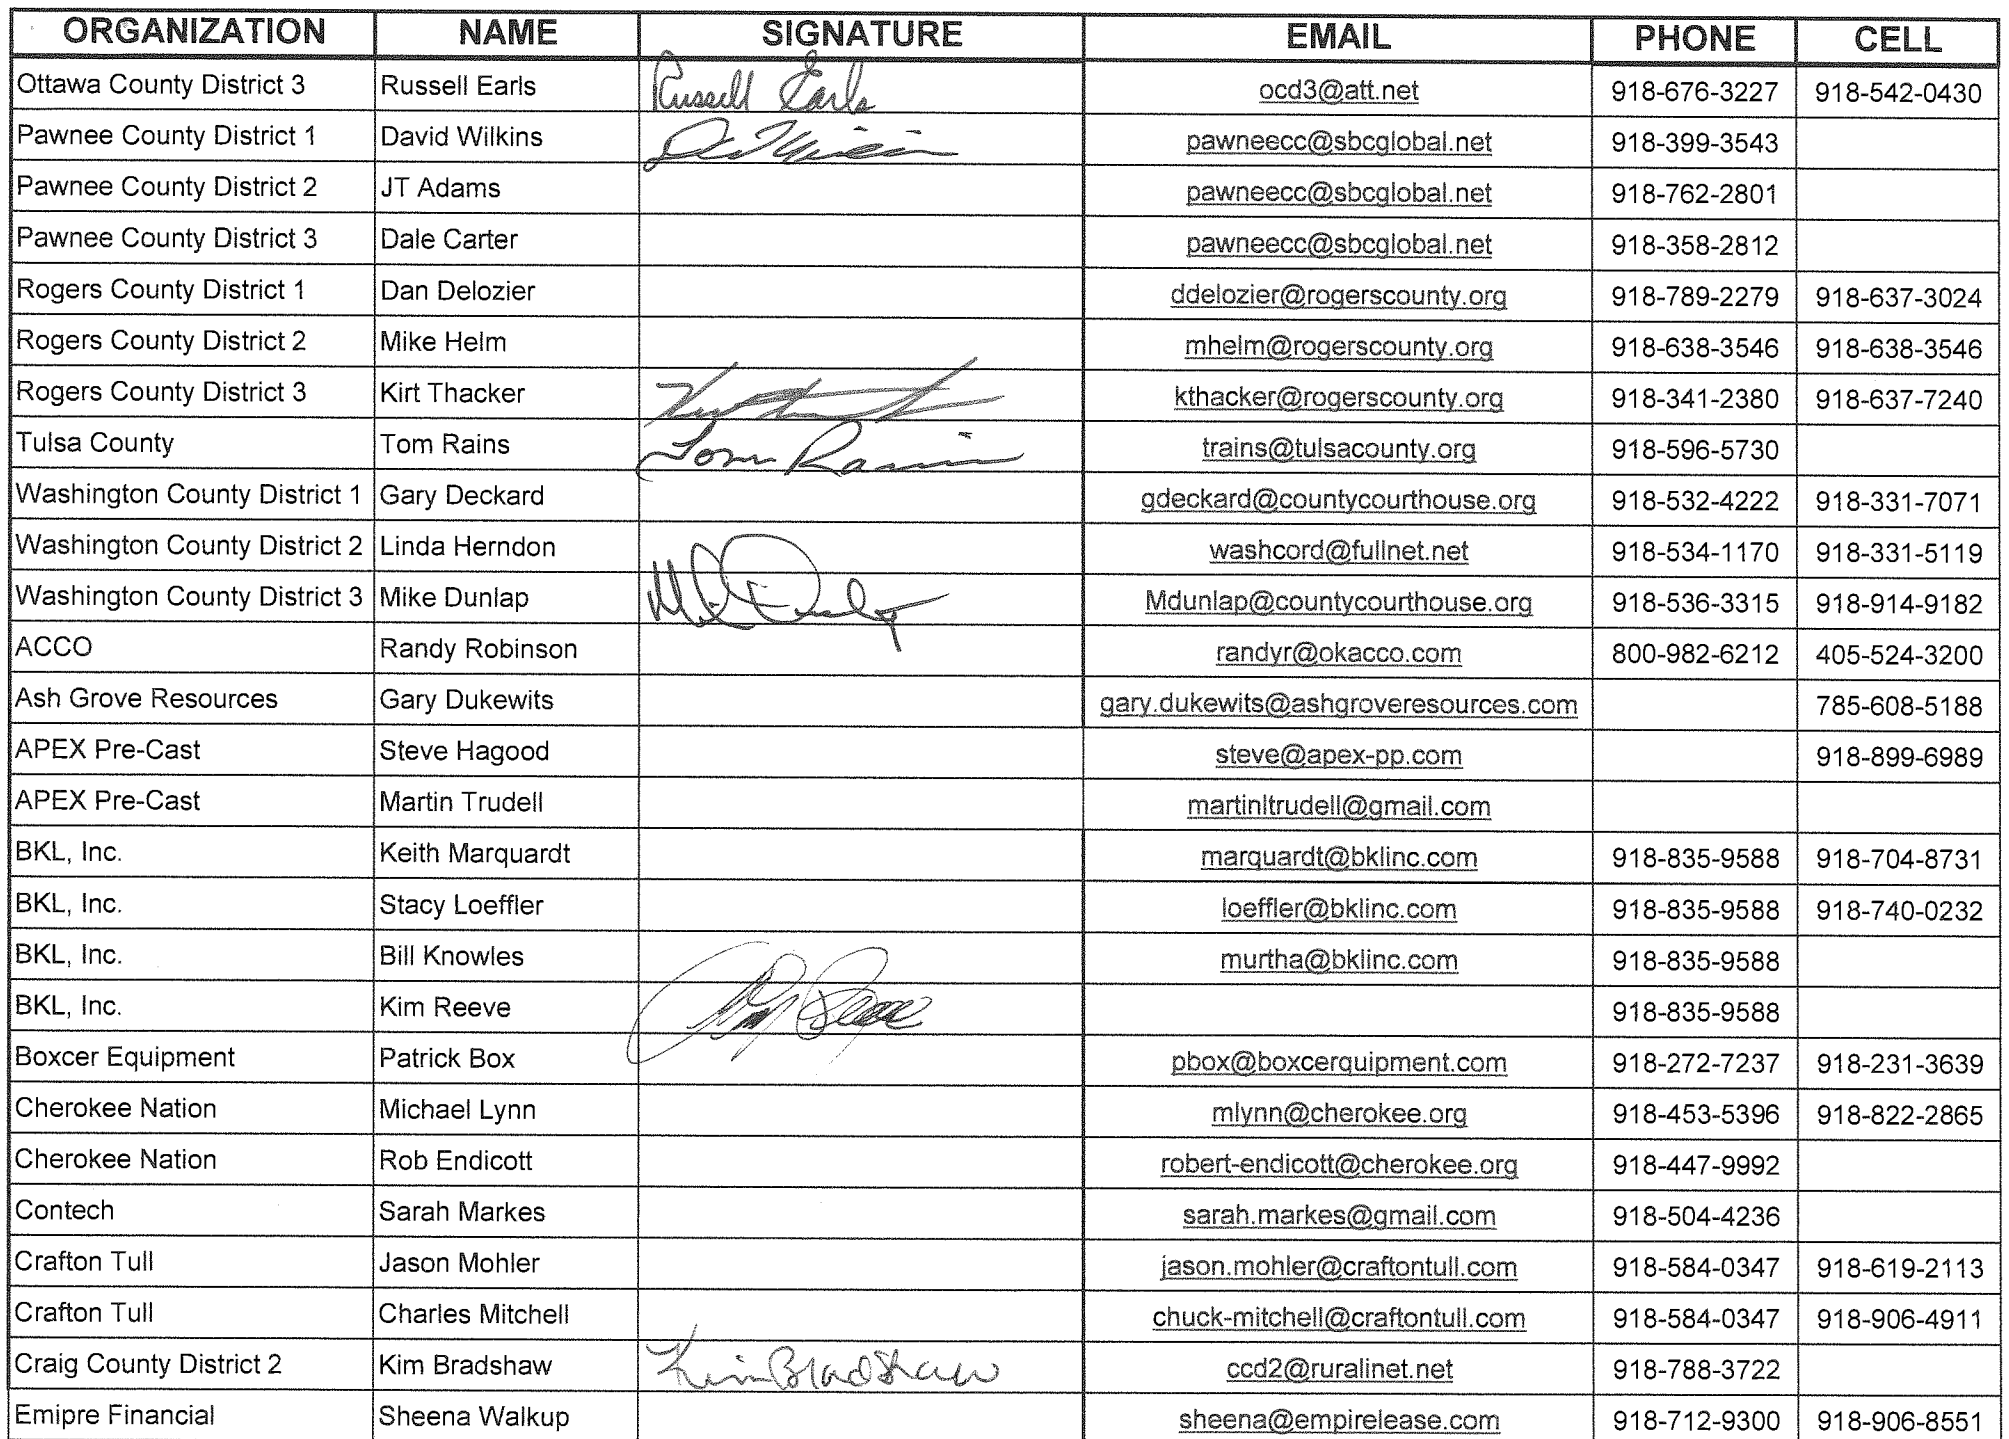 ORGANIZATION NAME SIGNATURE EMAIL PHONE CELL
Ottawa County District 3 Russell Earls Russell Earls ocd3@att.net 918-676-3227 918-542-0430
Pawnee County District 1 David Wilkins pawneecc@sbcglobal.net 918-399-3543
Pawnee County District 2 JT Adams pawneecc@sbcglobal.net 918-762-2801
Pawnee County District 3 Dale Carter pawneecc@sbcglobal.net 918-358-2812
Rogers County District 1 Dan Delozier ddelozier@rogerscounty.org 918-789-2279 918-637-3024
Rogers County District 2 Mike Helm mhelm@rogerscounty.org 918-638-3546 918-638-3546
Rogers County District 3 Kirt Thacker kthacker@rogerscounty.org 918-341-2380 918-637-7240
Tulsa County Tom Rains Tom Rains trains@tulsacounty.org 918-596-5730
Washington County District 1 Gary Deckard gdeckard@countycourthouse.org 918-532-4222 918-331-7071
Washington County District 2 Linda Herndon washcord@fullnet.net 918-534-1170 918-331-5119
Washington County District 3 Mike Dunlap Mdunlap@countycourthouse.org 918-536-3315 918-914-9182
ACCO Randy Robinson randyr@okacco.com 800-982-6212 405-524-3200
Ash Grove Resources Gary Dukewits gary.dukewits@ashgroveresources.com 785-608-5188
APEX Pre-Cast Steve Hagood steve@apex-pp.com 918-899-6989
APEX Pre-Cast Martin Trudell martinltrudell@gmail.com
BKL, Inc. Keith Marquardt marquardt@bklinc.com 918-835-9588 918-704-8731
BKL, Inc. Stacy Loeffler loeffler@bklinc.com 918-835-9588 918-740-0232
BKL, Inc. Bill Knowles murtha@bklinc.com 918-835-9588
BKL, Inc. Kim Reeve 918-835-9588
Boxcer Equipment Patrick Box pbox@boxcerquipment.com 918-272-7237 918-231-3639
Cherokee Nation Michael Lynn mlynn@cherokee.org 918-453-5396 918-822-2865
Cherokee Nation Rob Endicott robert-endicott@cherokee.org 918-447-9992
Contech Sarah Markes sarah.markes@gmail.com 918-504-4236
Crafton Tull Jason Mohler jason.mohler@craftontull.com 918-584-0347 918-619-2113
Crafton Tull Charles Mitchell chuck-mitchell@craftontull.com 918-584-0347 918-906-4911
Craig County District 2 Kim Bradshaw Kim Bradshaw ccd2@ruralinet.net 918-788-3722
Emipre Financial Sheena Walkup sheena@empirelease.com 918-712-9300 918-906-8551